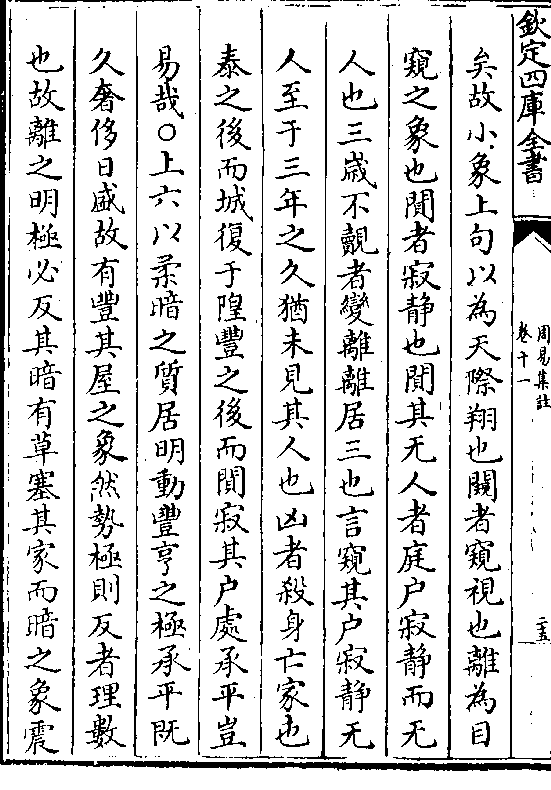 欽定四庫全書
周易集註
卷十一
二十五
矣故小象上句以為天際翔也闚者窺視也離為目
窺之象也闃者寂靜也闃其无人者庭户寂靜而无
人也三歳不覿者變離離居三也言窺其户寂靜无
人至于三年之久猶未見其人也凶者殺身亡家也
泰之後而城復于隍豐之後而闃寂其户處承平豈
易哉○上六以柔暗之質居明動豐亨之極承平既
久奢侈日盛故有豐其屋之象然勢極則反者理數
也故離之明極必反其暗有草塞其家而暗之象震